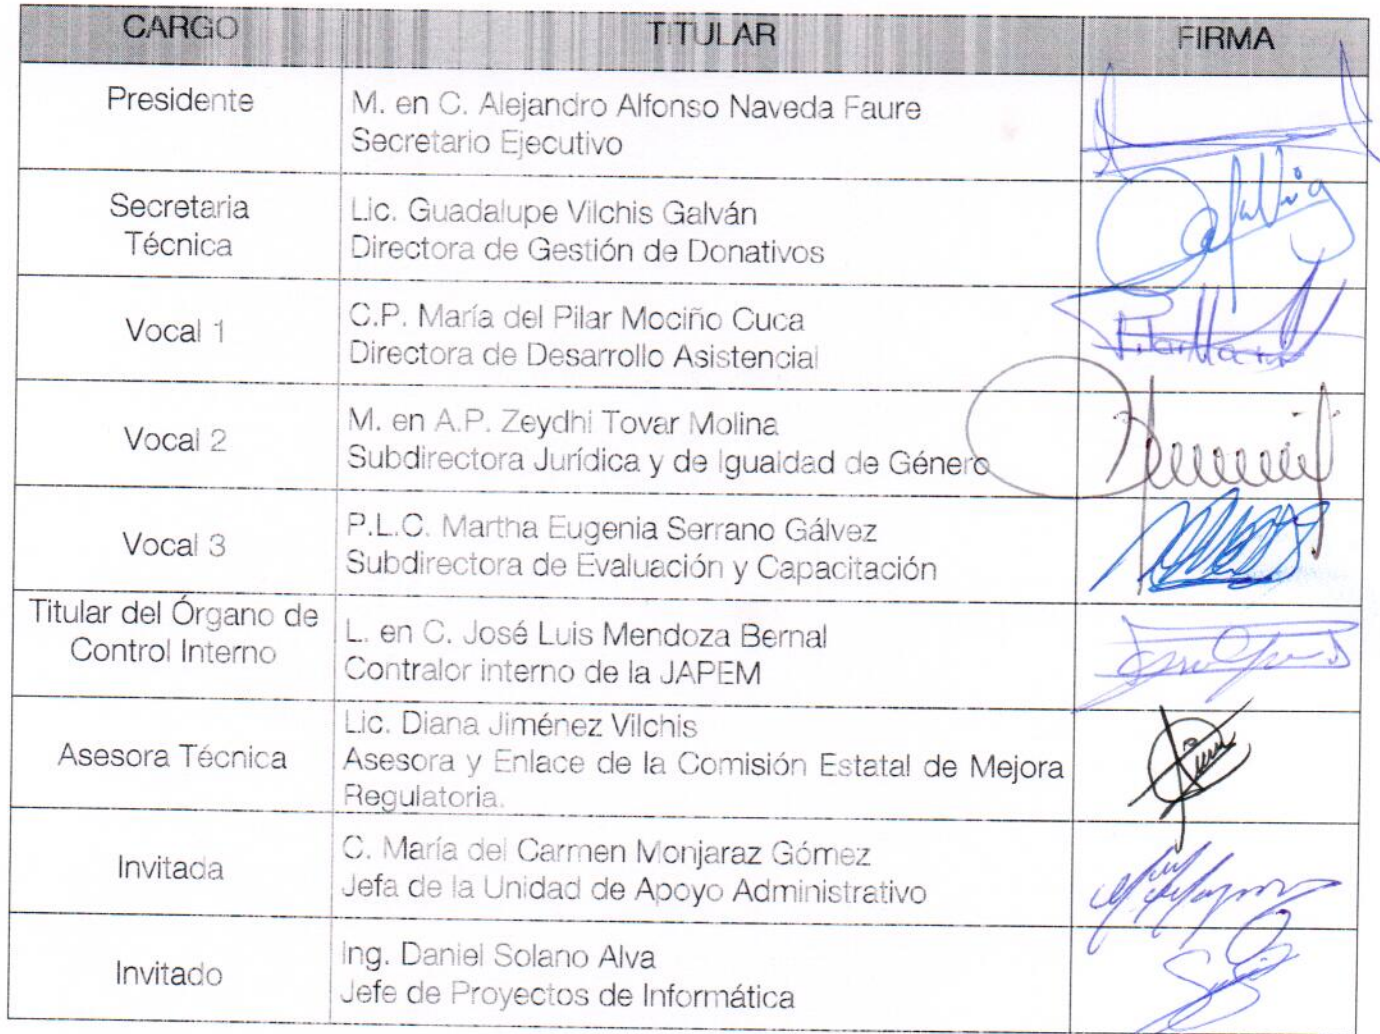 CARGO TITULAR FIRMA
Presidente
M. en C. Alejandro Alfonso Naveda Faure
Secretario Ejecutivo
Secretaria
Técnica
Lic. Guadalupe Vilchis Galván
Directora de Gestión de Donativos
Vocal 1
C.P. María del Pilar Mociño Cuca
Directora de Desarrollo Asistencial
Vocal 2
M. en A.P. Zeydhi Tovar Molina
Subdirectora Jurídica y de Igualdad de Género
Vocal 3
P.L.C. Martha Eugenia Serrano Gálvez
Subdirectora de Evaluación y Capacitación
Titular del Órgano de
Control Interno
L. en C. José Luis Mendoza Bernal
Contralor interno de la JAPEM
Asesora Técnica
Lic. Diana Jiménez Vilchis
Asesora y Enlace de la Comisión Estatal de Mejora
Regulatoria.
Invitada
C. María del Carmen Monjaraz Gómez
Jefa de la Unidad de Apoyo Administrativo
Invitado
Ing. Daniel Solano Alva
Jefe de Proyectos de Informática